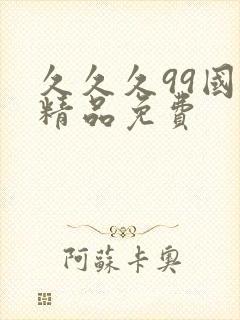 久久久99國
精品免費
阿蘇卡奧